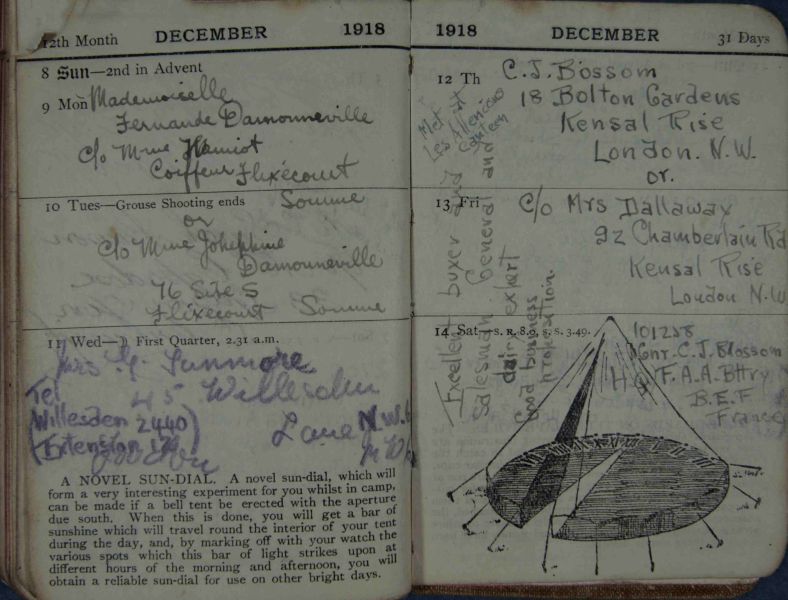 12th Month DECEMBER 1918
8 Sun—2nd in Advent
9 Mon Mademoiselle
Fernande Damonneville
c/o Mme Hamiot
Coiffeur Flixécourt
10 Tues—Grouse Shooting ends Somme
or
c/o Mme Johephine
Damonneville
76 Site S
Flixecourt Somme
11 Wed—☽ First Quarter, 2.31 a.m.
Mrs G. Sunmore
45 Willesden
Lane N.W.6
Tel
Willesden 2440
Extension
A NOVEL SUN-DIAL. A novel sun-dial, which will
form a very interesting experiment for you whilst in camp,
can be made if a bell tent be erected with the aperture
due south. When this is done, you will get a bar of
sunshine which will travel round the interior of your tent
during the day, and, by marking off with your watch the
various spots which this bar of light strikes upon at
different hours of the morning and afternoon, you will
obtain a reliable sun-dial for use on other bright days.
1918 DECEMBER 31 Days
12 Th C. J. Bossom
18 Bolton Gardens
Kensal Rise
London. N.W.
or.
Met at
Les Allencons
canteen
13 Fri c/o Mrs Dallaway
92 Chamberlain Rd
Kensal Rise
London N.W
Excellent buxer and
salesman General and
dairy expert
Good business
proposition.
14 Sat—S. R. 8.0, S. S. 3.49.
101238
Gnr. C. J. Blossom
F.A.A. Bttry
B.E.F
France